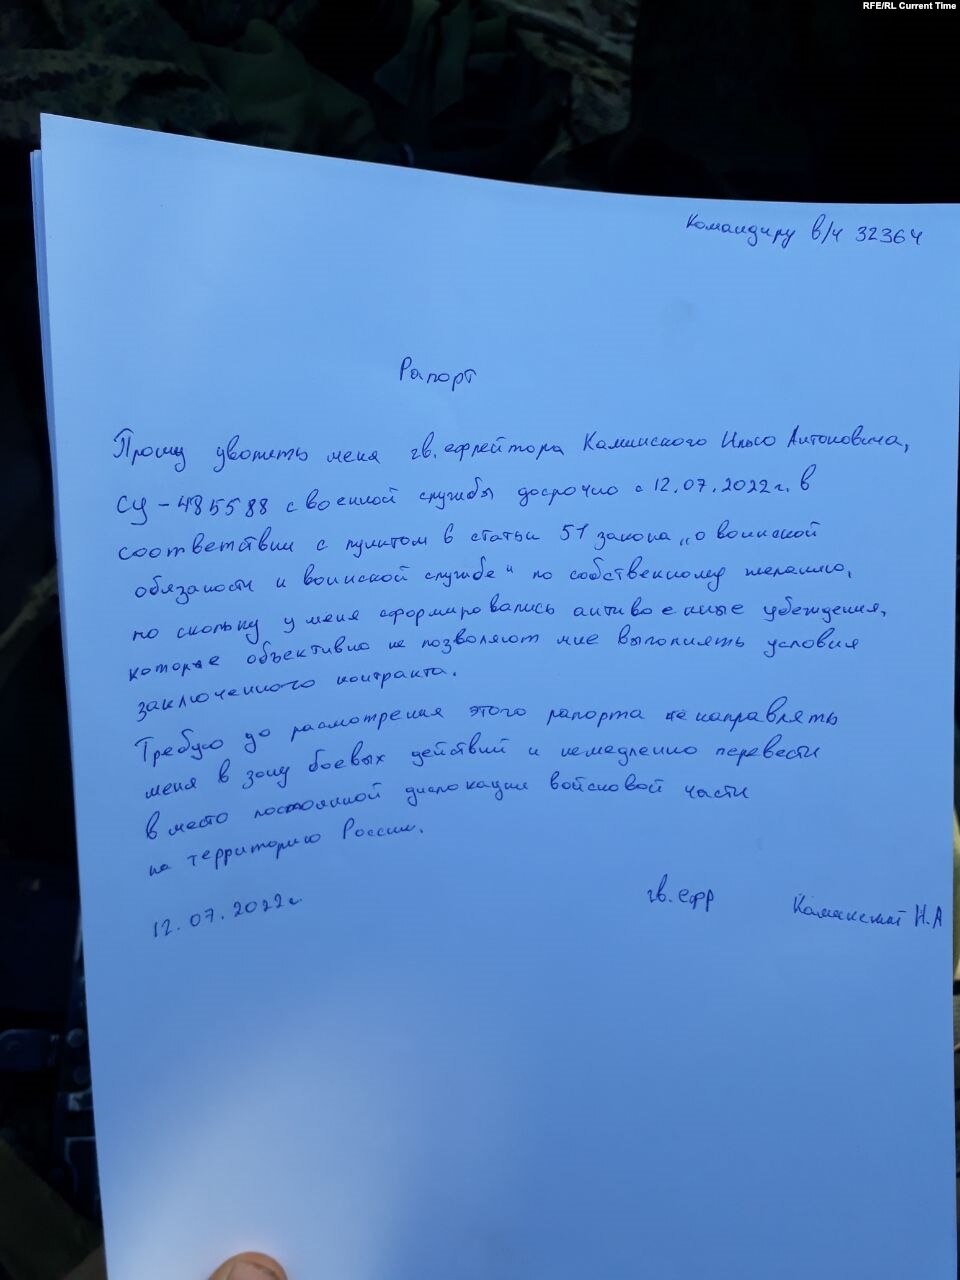 RFE/RL Current Time
Командиру в/ч 32364
Рапорт
Прошу уволить меня гв. ефрейтора Каминского Илью Антоновича,
СУ - 485588 с военной службы досрочно с 12.07.2022г. в
соответствии с пунктом 6 статьи 51 закона „о воинской
обязаности и воинской службе“ по собственному желанию,
по скольку у меня сформировались антивоенные убеждения,
которые объективно не позволяют мне выполнять условия
заключенного контракта.
Требую до расмотрения этого рапорта не направлять
меня в зону боевых действий и немедленно перевести
в место постоянной дислокации войсковой части
на территорию России.
12.07.2022г. гв. ефр Каминский И.А